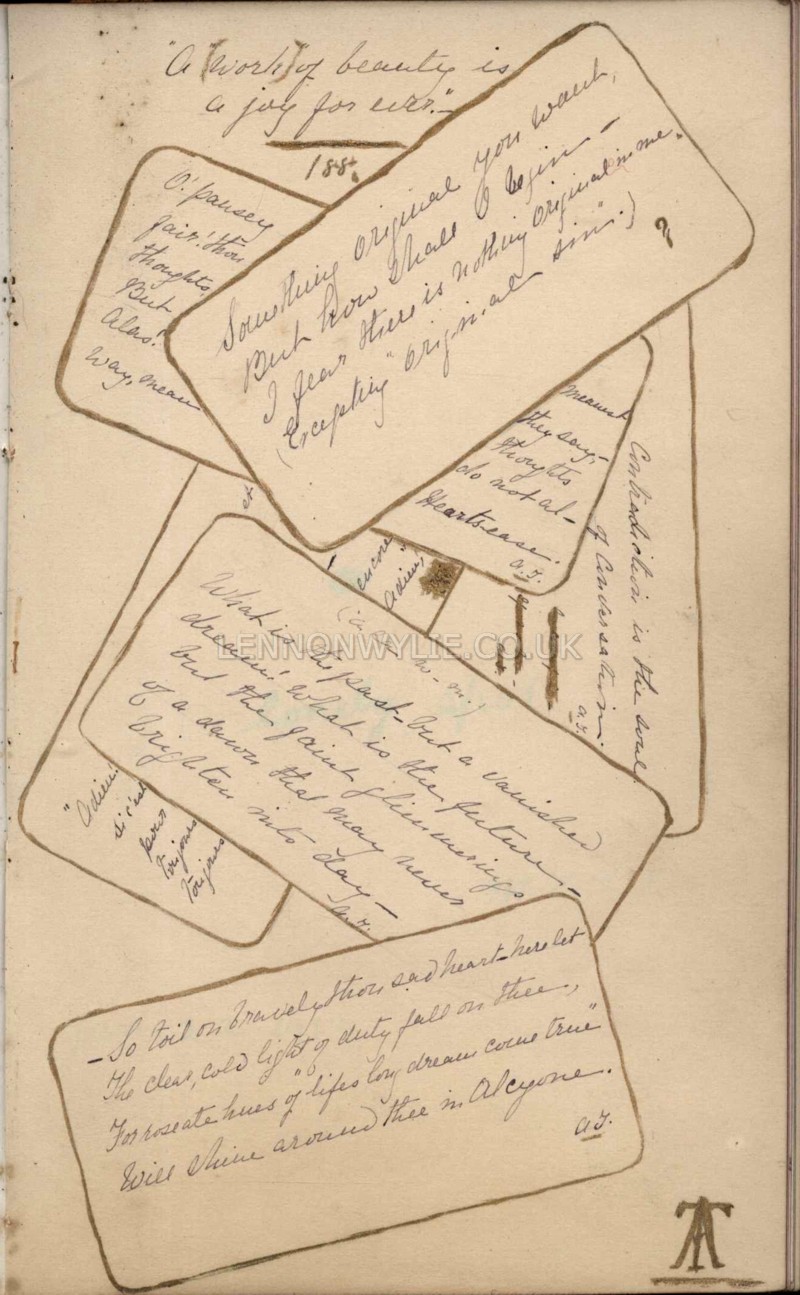 "A "work" of beauty is
a joy for ever."
188
O! pansey
fair! thou
thoughts,
But
Alas!
way, mean
Something original you want,
But how shall I begin —
I fear there is nothing original in me.
(Excepting "original sin".)
?
meanest
they say,—
thoughts
do not al-
Heartsease.
A.T.
Contradiction is the soul
of Conversation.
A.T.
encore
Adieu,"
What is the past — but a vanished
dream! What is the future —
but the faint glimmerings
of a dawn that may never
brighten into day —
A.T.
"Adieu!
si c'est
pour
toujours
toujours
— So toil on bravely thou sad heart — here let
The clear, cold light of duty fall on thee,
For roseate hues of "lifes long dream come true"
Will shine around thee in Alcyone.
A.T.
AT
LENNONWYLIE.CO.UK